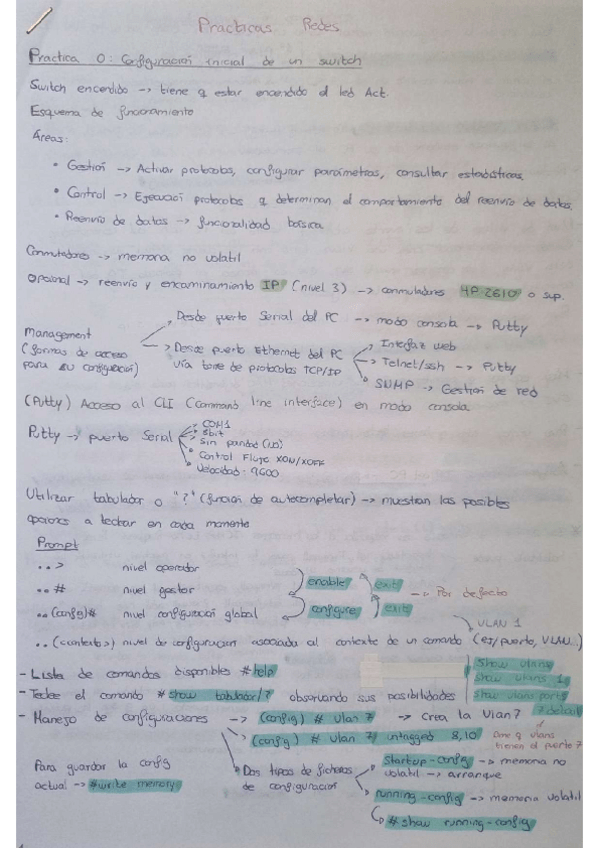 Practicas Redes
Practica 0: Configuración inicial de un switch
Switch encendido -> tiene q estar encendido el led Act.
Esquema de funcionamiento
Áreas:
• Gestión -> Activar protocolos, configurar parámetros, consultar estadísticas
• Control -> Ejecución protocolos q determinan el comportamiento del reenvío de datos
• Reenvío de datos -> funcionalidad básica
Conmutadores -> memoria no volatil
Opcional -> reenvío y encaminamiento IP (nivel 3) -> conmutadores HP 2610 o sup.
Management
(formas de acceso
para su configuración)
Desde puerto Serial del PC -> modo consola -> Putty
Desde puerto Ethernet del PC
vía torre de protocolos TCP/IP
Interfaz web
Telnet/ssh -> Putty
SNMP -> Gestión de red
(Putty) Acceso al CLI (Command line interface) en modo consola
Putty -> puerto Serial
COM1
8bit
Sin paridad (no)
Control Flujo XON/XOFF
Velocidad - 9600
Utilizar tabulador o "?" (función de autocompletar) -> muestran las posibles
opciones a teclear en cada momento
Prompt
..> nivel operador
..# nivel gestor
enable exit
..(config)# nivel configuración global
configure exit
-> Por defecto
VLAN 1
..(contexto>) nivel de configuracion asociada al contexto de un comando (ej/puerto, VLAN...)
- Lista de comandos disponibles #help
- Teclee el comando #show tabulador/? observando sus posibilidades
Show vlans
Show vlans 1
Show vlans ports
- Manejo de configuraciones -> (config) # vlan 7 -> Crea la vlan 7
(config) # vlan 7 untagged 8,10
vlans
tienen el puerto 7
Para guardar la config
actual -> #write memory
Dos tipos de ficheros
de configuración
Startup-config -> memoria no
volatil -> arranque
running-config -> memoria volatil
#show running-config